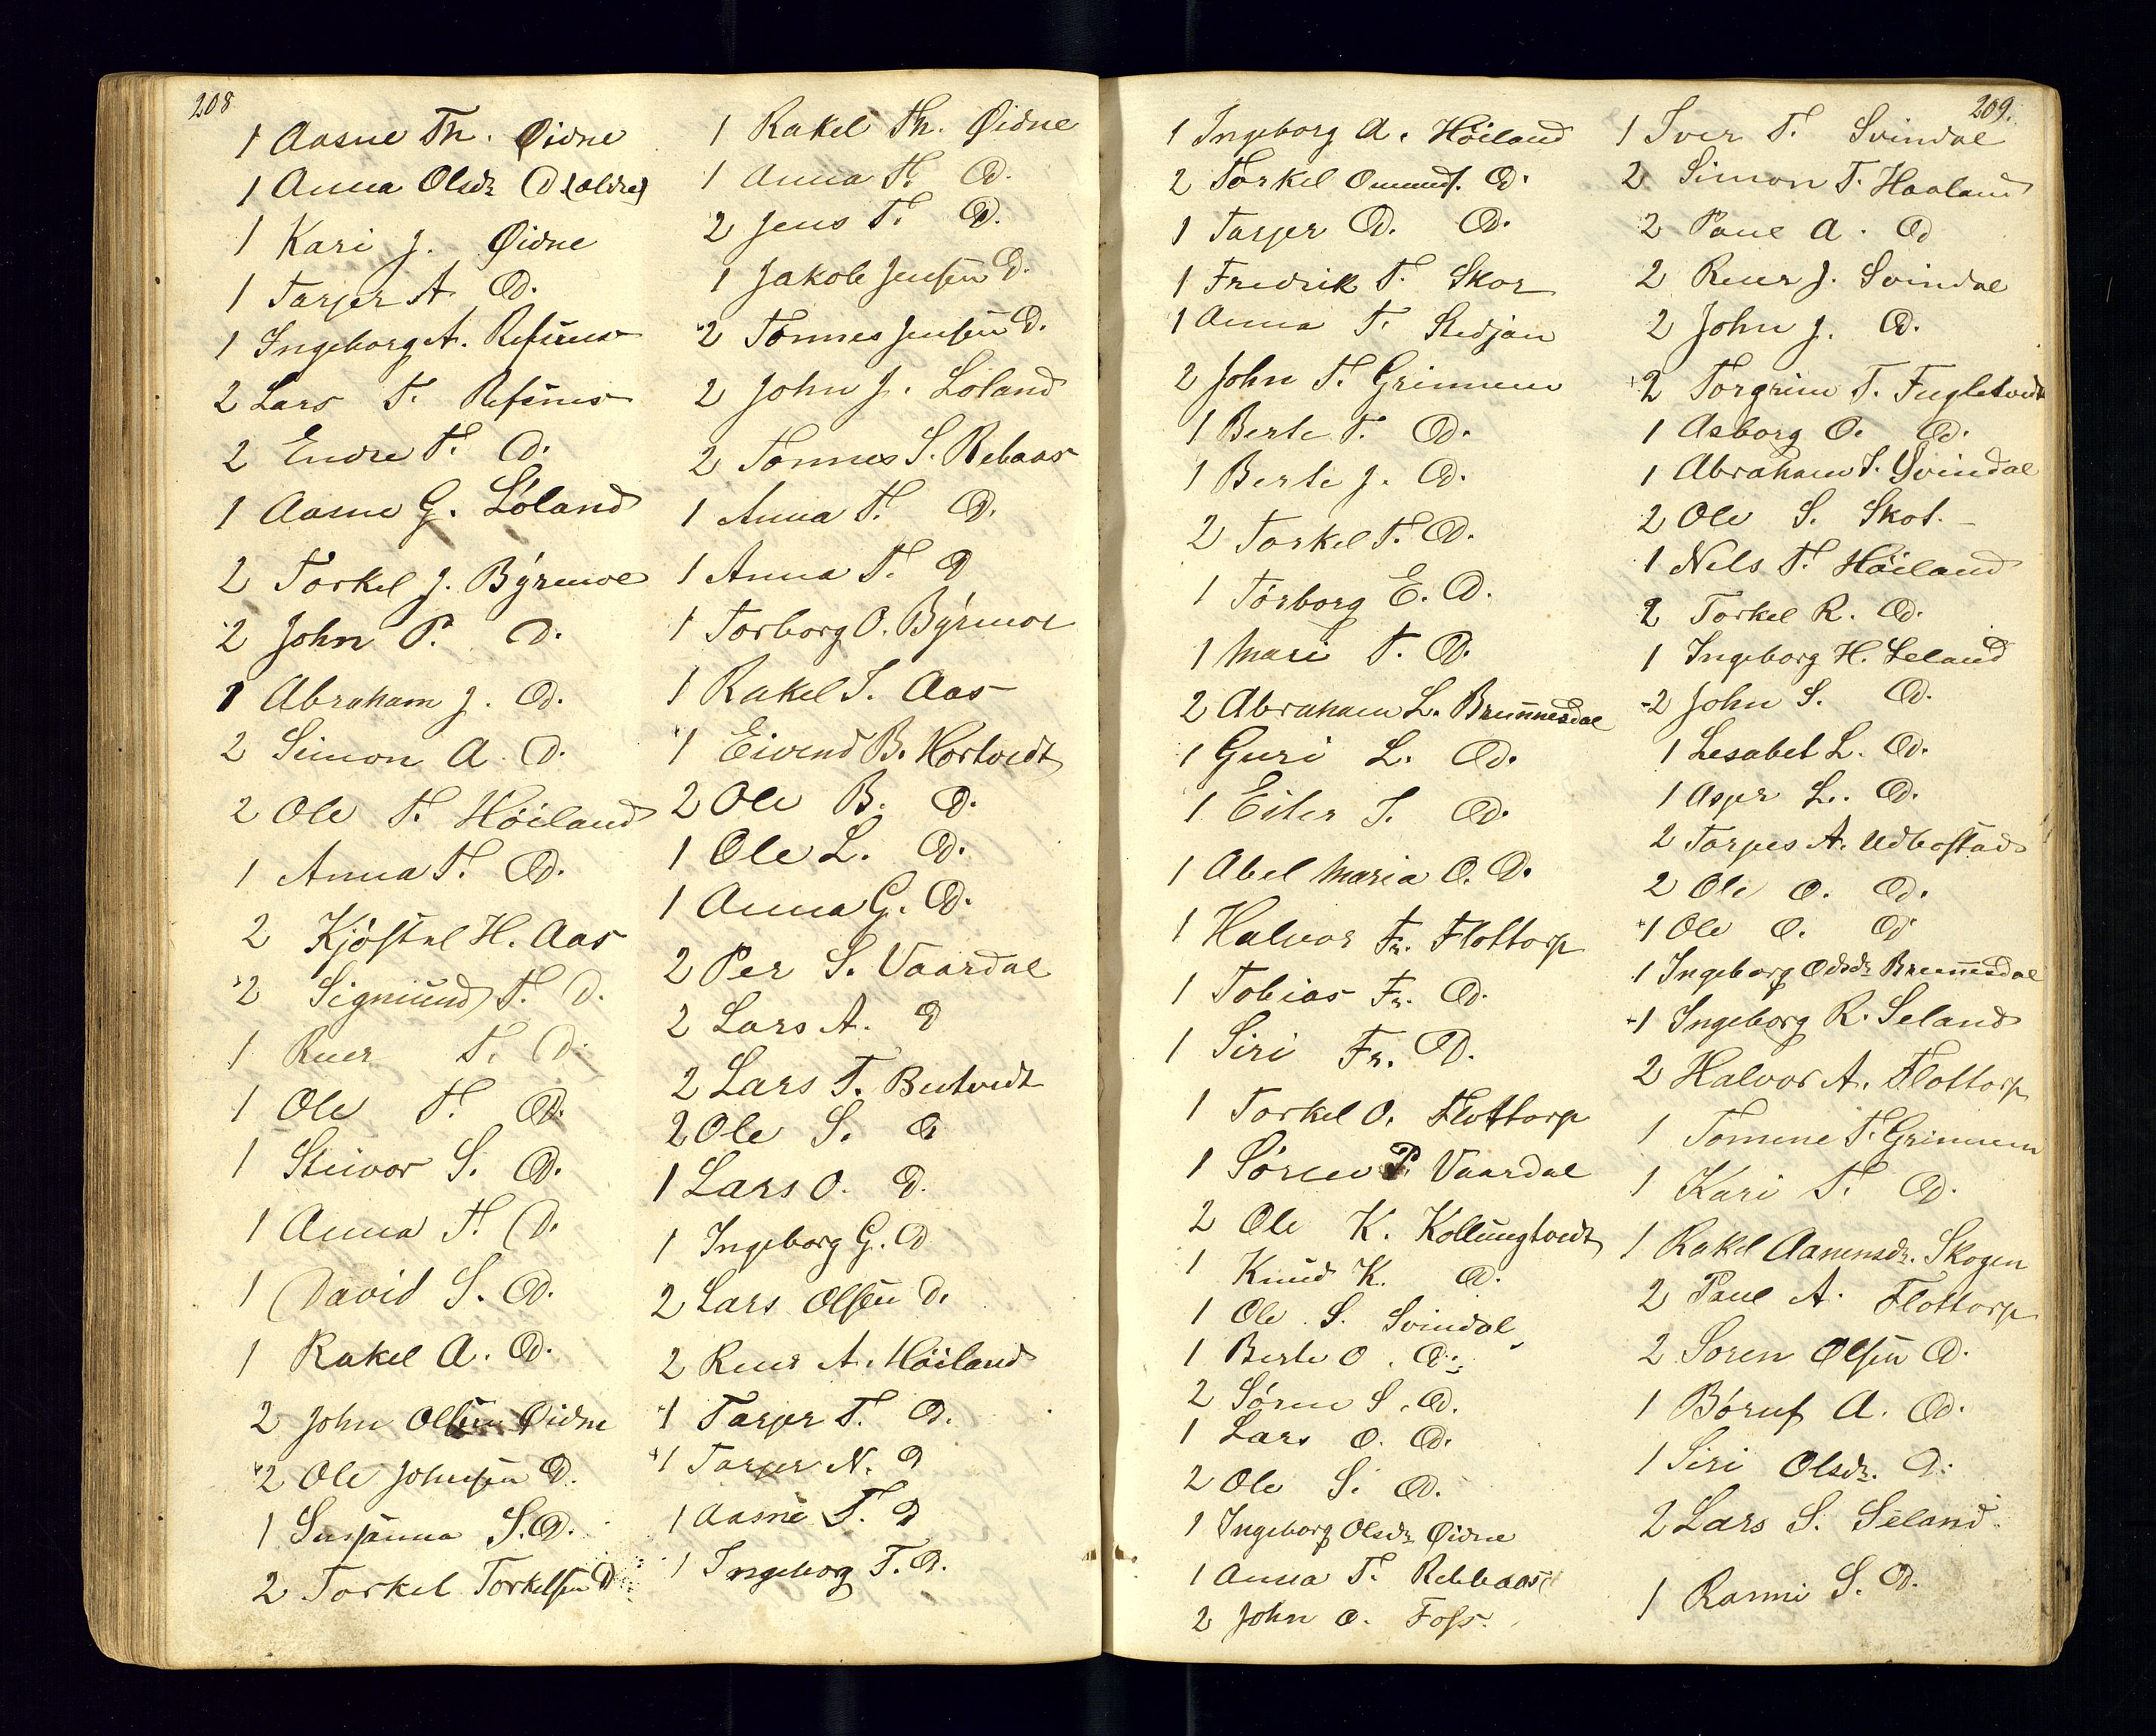 208
1 Aasne Th. Øidne
1 Anna Olsdr D (ældre)
1 Kari J. Øidne
1 Tarjer A. D.
1 Ingeborg A. Refsnes
2 Lars T. Refsnes
2 Endre T. D.
1 Aasne G. Løland
2 Torkel J. Býrmoe
2 John P. D.
1 Abraham J. D.
2 Simon A. D.
2 Ole T. Höiland
1 Anna T. D.
2 Kjöstel H. Aas
2 Sigmund T. D.
1 Reer T. D.
1 Ole T. D.
1 Steivor S. D.
1 Anna T. D.
1 David S. D.
1 Rakel A. D.
2 John Olsen Øidne
2 Ole Johnsen D.
1 Susanna S. D.
2 Torkel Torkelsen D
1 Rakel Th. Øidne
1 Anna T. D.
2 Jens T. D.
1 Jakob Jensen D.
2 Tönnes Jensen D.
2 John J. Loland
2 Tonnes S. Rebaas
1 Anna T. D.
1 Anna T. D
1 Torborg O. Býrmoe
1 Rakel T. Aas
1 Eivend B. Hortvedt
2 Ole B. D.
1 Ole L. D.
1 Anna G. D.
2 Per S. Vaardal
2 Lars A. D
2 Lars T.
2 Ole S. D
1 Lars O. D.
1 Ingeborg G. D
2 Lars Olsen D.
2 Reer A. Höiland
1 Tarjer T. D.
1 Tarjer N. D
1 Aasne T. D
1 Ingeborg T. D.
209.
1 Ingeborg A. Höiland
2 Torkel Omunds. D.
1 Tarjer D. D.
1 Fredrik T. Skor
1 Anna T. Stedjan
2 John T. Grimnem
1 Berte T. D.
1 Berte J. D.
2 Torkel T. D.
1 Törborg E. D.
1 Mari T. D.
2 Abraham L. Brunnesdal
1 Guri L. D.
1 Eiler T. D.
1 Abel Maria O. D.
1 Halvor Fr. Flottorp
1 Tobias Fr. D.
1 Siri Fr. D.
1 Torkel O. Flottorp
1 Sören P Vaardal
2 Ole K. Kollungtvedt
1 Knud K. D.
1 Ole S. Svindal
1 Berte O. D.
2 Sören S. D.
1 Lars O. D.
2 Ole S. D.
1 Ingeborg Olsdr Øidne
1 Anna T. Rebbaas
2 John O. Foss.
1 Iver T. Svindal
2 Simon T. Haaland
2 Paul A. D
2 Reer J. Svindal
2 John J. D.
2 Torgrim T. Fugletvedt
1 Asborg O. D.
1 Abraham T. Svindal
2 Ole S. Skot.
1 Nels T. Höiland
2 Torkel R. D.
1 Ingeborg H. Seland
2 John S. D.
1 Lesabet L. D.
1 Asper L. D.
2 Tarjes A. Udbostad
2 Ole O. D.
1 Ole O. D
1 Ingeborg Olsdr Brunnesdal
1 Ingeborg R. Seland
2 Halvor A. Flottorp
1 Tomine T. Grimnem
1 Kari T. D.
1 Rakel Aanensdr. Skogen
2 Paul A. Flottorp
2 Soren Olsen D.
1 A. D.
1 Siri Olsdr. D.
2 Lars S. Seland
1 Ranni S. D.